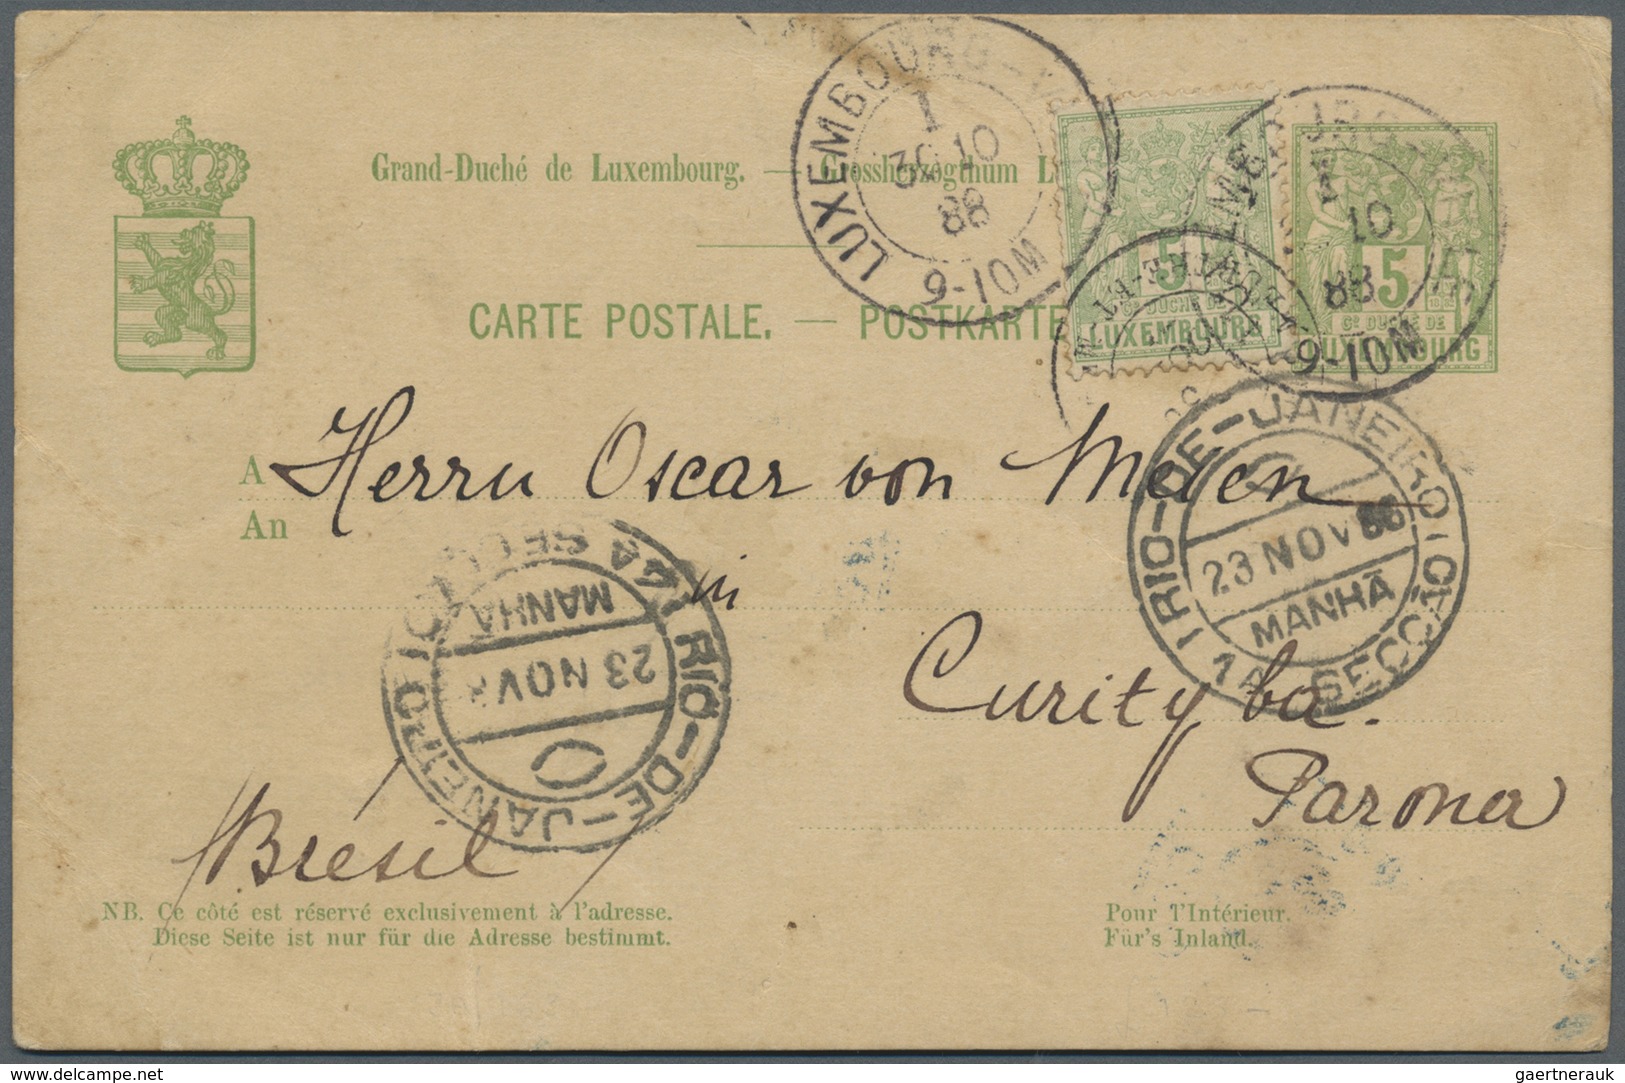 LUXEMBOURG-
1
30 10
88
9-10M
1
10
88
9-10M
Grand-Duché de Luxembourg. — Grossherzogthum L
5
Gd DUCHÉ DE
LUXEMBOURG
5
Gd DUCHÉ DE
LUXEMBOURG
CARTE POSTALE. — POSTKARTE
A Herrn Oscar von Meien
An
in
Curityba.
Parona
Brésil
RIO-DE-JANEIRO
23 NOV 88
MANHÃ
1A SECÇÃO
RIO-DE-JANEIRO
23 NOV
MANHÃ
NB. Ce côté est réservé exclusivement à l'adresse.
Diese Seite ist nur für die Adresse bestimmt.
Pour l'Intérieur.
Für's Inland.
www.delcampe.net
gaertnerauk